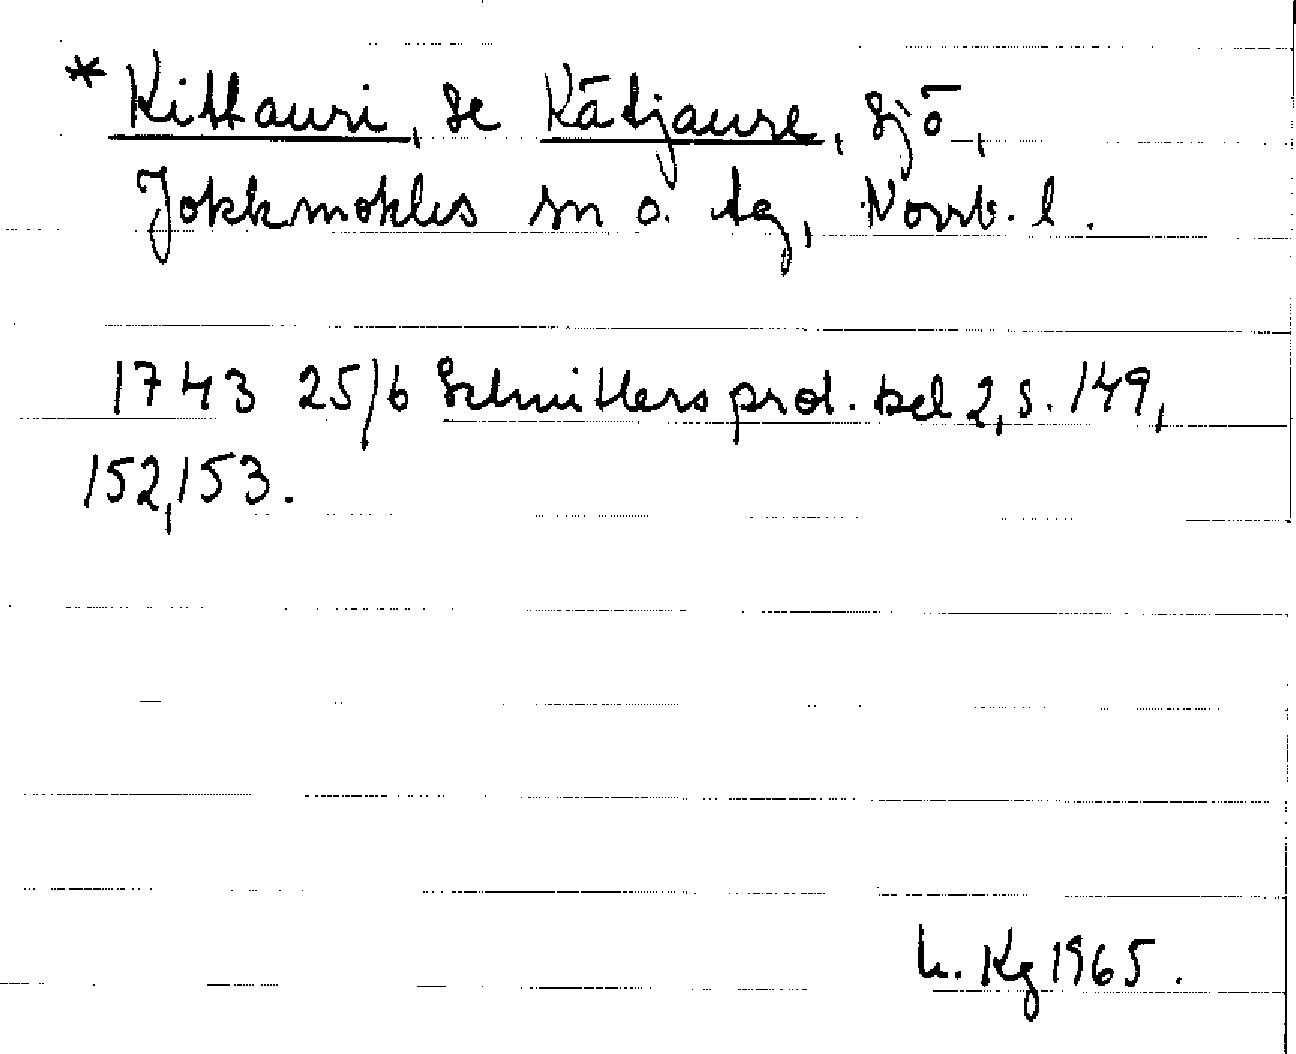 * Kittauri, se Kātjaure, sjö,
Jokkmokks sn o. tg, Norrb. l.
1743 25/6 Schnitlers prot. bd 2, s. 149,
152, 153.
Kg 1965.